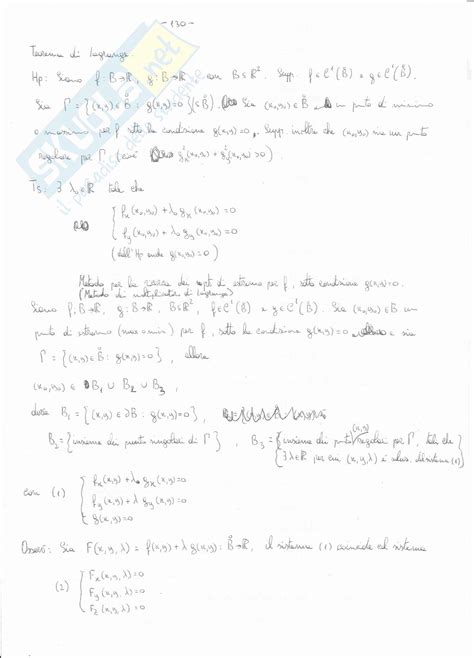 - 130 -
Teorema di Lagrange
Hp: Siano f: B→ℝ, g: B→ℝ con B⊆ℝ². Supp. f∈C¹(B̊) e g∈C¹(B̊)
Sia Γ = {(x,y)∈B̊ : g(x,y)=0}(⊆B̊). Sia (x₀,y₀)∈B̊ un punto di minimo
o massimo per f sotto la condizione g(x,y)=0. Supp. inoltre che (x₀,y₀) sia un punto
regolare per Γ (cioè g²ₓ(x₀,y₀) + g²ᵧ(x₀,y₀) > 0).
Ts: ∃ λ₀∈ℝ tale che
fₓ(x₀,y₀) + λ₀ gₓ(x₀,y₀) = 0
fᵧ(x₀,y₀) + λ₀ gᵧ(x₀,y₀) = 0
(dall'Hp anche g(x₀,y₀)=0)
Metodo per la ricerca dei pti di estremo per f, sotto condizione g(x,y)=0.
(Metodo dei moltiplicatori di Lagrange)
Siano f: B→ℝ, g: B→ℝ, B⊆ℝ², f∈C¹(B̊) e g∈C¹(B̊). Sia (x₀,y₀)∈B un
punto di estremo (max o min) per f, sotto la condizione g(x,y)=0 e sia
Γ = {(x,y)∈B̊ : g(x,y)=0}, allora
(x₀,y₀) ∈ B₁ ∪ B₂ ∪ B₃,
dove B₁ = {(x,y)∈∂B : g(x,y)=0},
B₂ = {insieme dei punti singolari di Γ}, B₃ = {insieme dei punti (x,y) regolari per Γ, tali che
∃λ∈ℝ per cui (x,y,λ) è soluz. del sistema (1)
con (1) fₓ(x,y) + λ gₓ(x,y) = 0
fᵧ(x,y) + λ gᵧ(x,y) = 0
g(x,y) = 0
Osserv: Sia F(x,y,λ) = f(x,y) + λ g(x,y) : B̊→ℝ, il sistema (1) coincide col sistema
(2) Fₓ(x,y,λ) = 0
Fᵧ(x,y,λ) = 0
F_z(x,y,λ) = 0
skuola.net
il paradiso dello studente